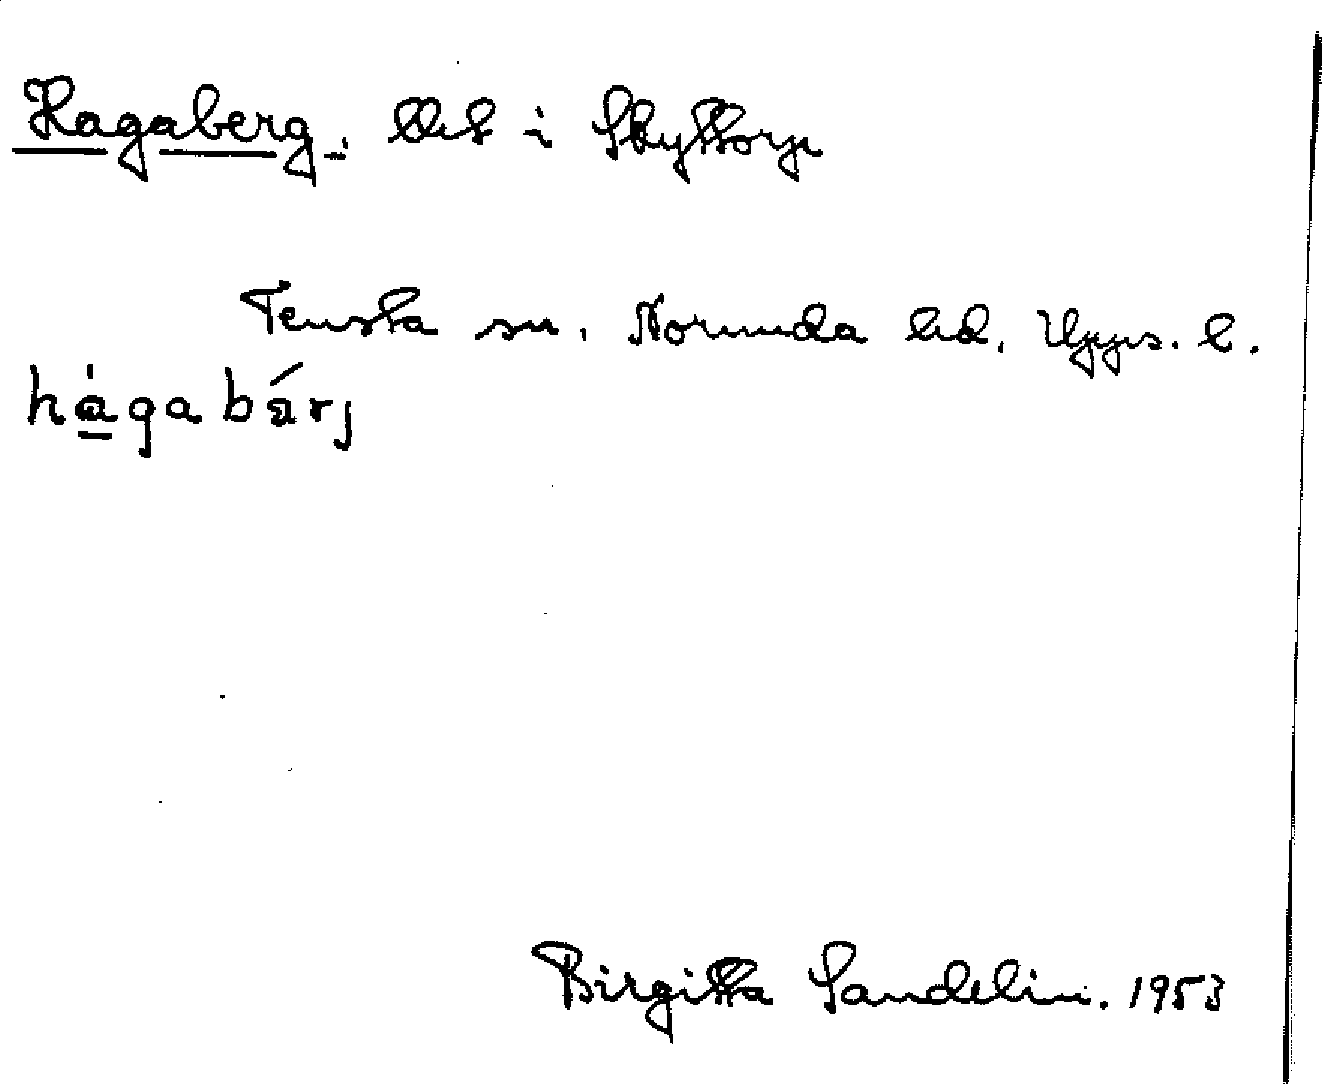 Hagaberg, lht i Skyttorp
Tensta sn. Norunda hd. Upps. l.
hàgabárj
Birgitta Sandelin. 1953